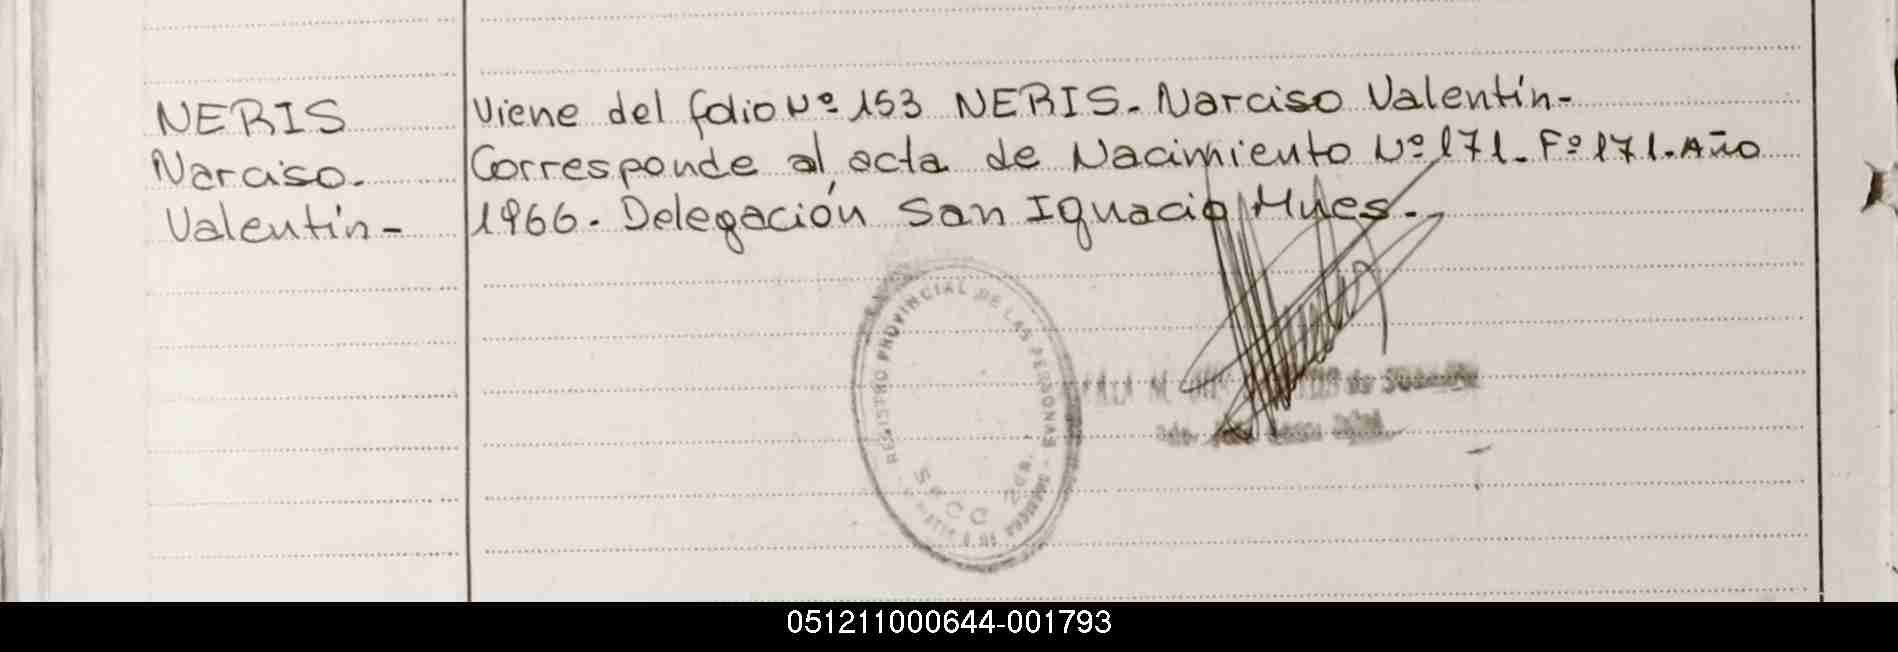 NERIS
Narciso.
Valentín-
Viene del folio Nº 153 NERIS. Narciso Valentín-
Corresponde al acta de Nacimiento Nº 171. Fº 171. Año
1966. Delegación San Ignacio Mnes.
REGISTRO PROVINCIAL DE LAS PERSONAS
SECC
051211000644-001793